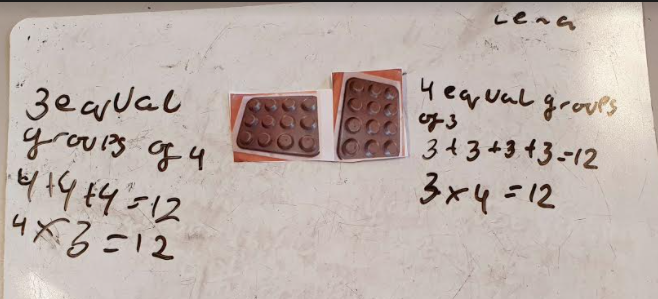 Lena
3 equal
groups of 4
4+4+4=12
4×3=12
4 equal groups
of 3
3+3+3+3=12
3×4=12